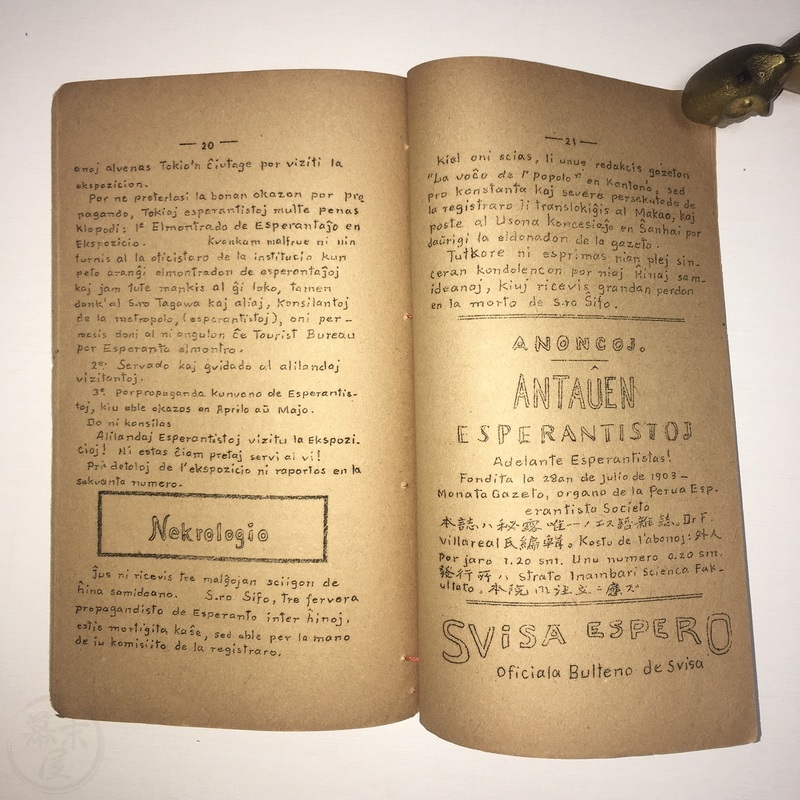 — 20 —
anoj alvenas Tokio'n ĉiutage por viziti la
ekspozicion.
Por ne preterlasi la bonan okazon por pro
pagando, Tokioj esperantistoj multe penas
Klopodi: 1e Elmontrado de Esperantaĵo en
Ekspozicio. Kvankam malfrue ni nin
turnis al la oficistaro de la institucio kun
peto aranĝi elmontradon de esperantaĵoj
kaj jam tute mankis al ĝi loko, tamen
dank'al S.ro Tagawa kaj aliaj, konsilantoj
de la metropolo, (esperantistoj), oni per-
mesis doni al ni angulon ĉe Tourist Bureau
por Esperanta elmontro.
2e: Servado kaj gvidado al alilandaj
vizitantoj.
3e. Porpropaganda kunveno de Esperantis-
toj, kiu eble okazos en Aprilo aŭ Majo.
Do ni konsilas
Alilandaj Esperantistoj vizitu la Ekspozi-
cioj! Ni estas ĉiam pretaj servi al vi!
Pri detaloj de l'ekspozicio ni raportos en la
sekvanta numero.
Nekrologio
Ĵus ni ricevis tre malĝojan sciigon de
ĥina samideano. S.ro Sifo, tre fervora
propagandisto de Esperanto inter ĥinoj,
estis mortigita kaŝe, sed eble per la mano
de iu komisiito de la registraro.
— 21 —
Kiel oni scias, li unue redakcis gazeton
"La voĉo de l'Popolo" en Kantono, sed
pro konstanta kaj severe persekutado de
la registraro li translokiĝis al Makao, kaj
poste al Usona Koncesiaĵo en Ŝanhai por
daŭrigi la eldonadon de la gazeto.
Tutkore ni esprimas nian plej sin-
ceran kondolencon por niaj Ĥinaj sam-
ideanoj, kiuj ricevis grandan perdon
en la morto de S.ro Ŝifo.
ANONCOJ.
ANTAŬEN
ESPERANTISTOJ
Adelante Esperantistas!
Fondita la 28an de julio de 1903 —
Monata Gazeto, organo de la Perua Esp-
erantista Societo
本誌ハ秘露唯一ノエス語雜誌。Dr F.
Villareal氏編輯。Kostu de l'abonoj: 外人
Por jaro 1.20 sm. Unu numero 0.20 sm.
發行所ハ strato Inambari Scienca Fak-
ultato. 本院ハ注文ニ應ズ
SVISA ESPERO
Oficiala Bulteno de Svisa
幕末屋